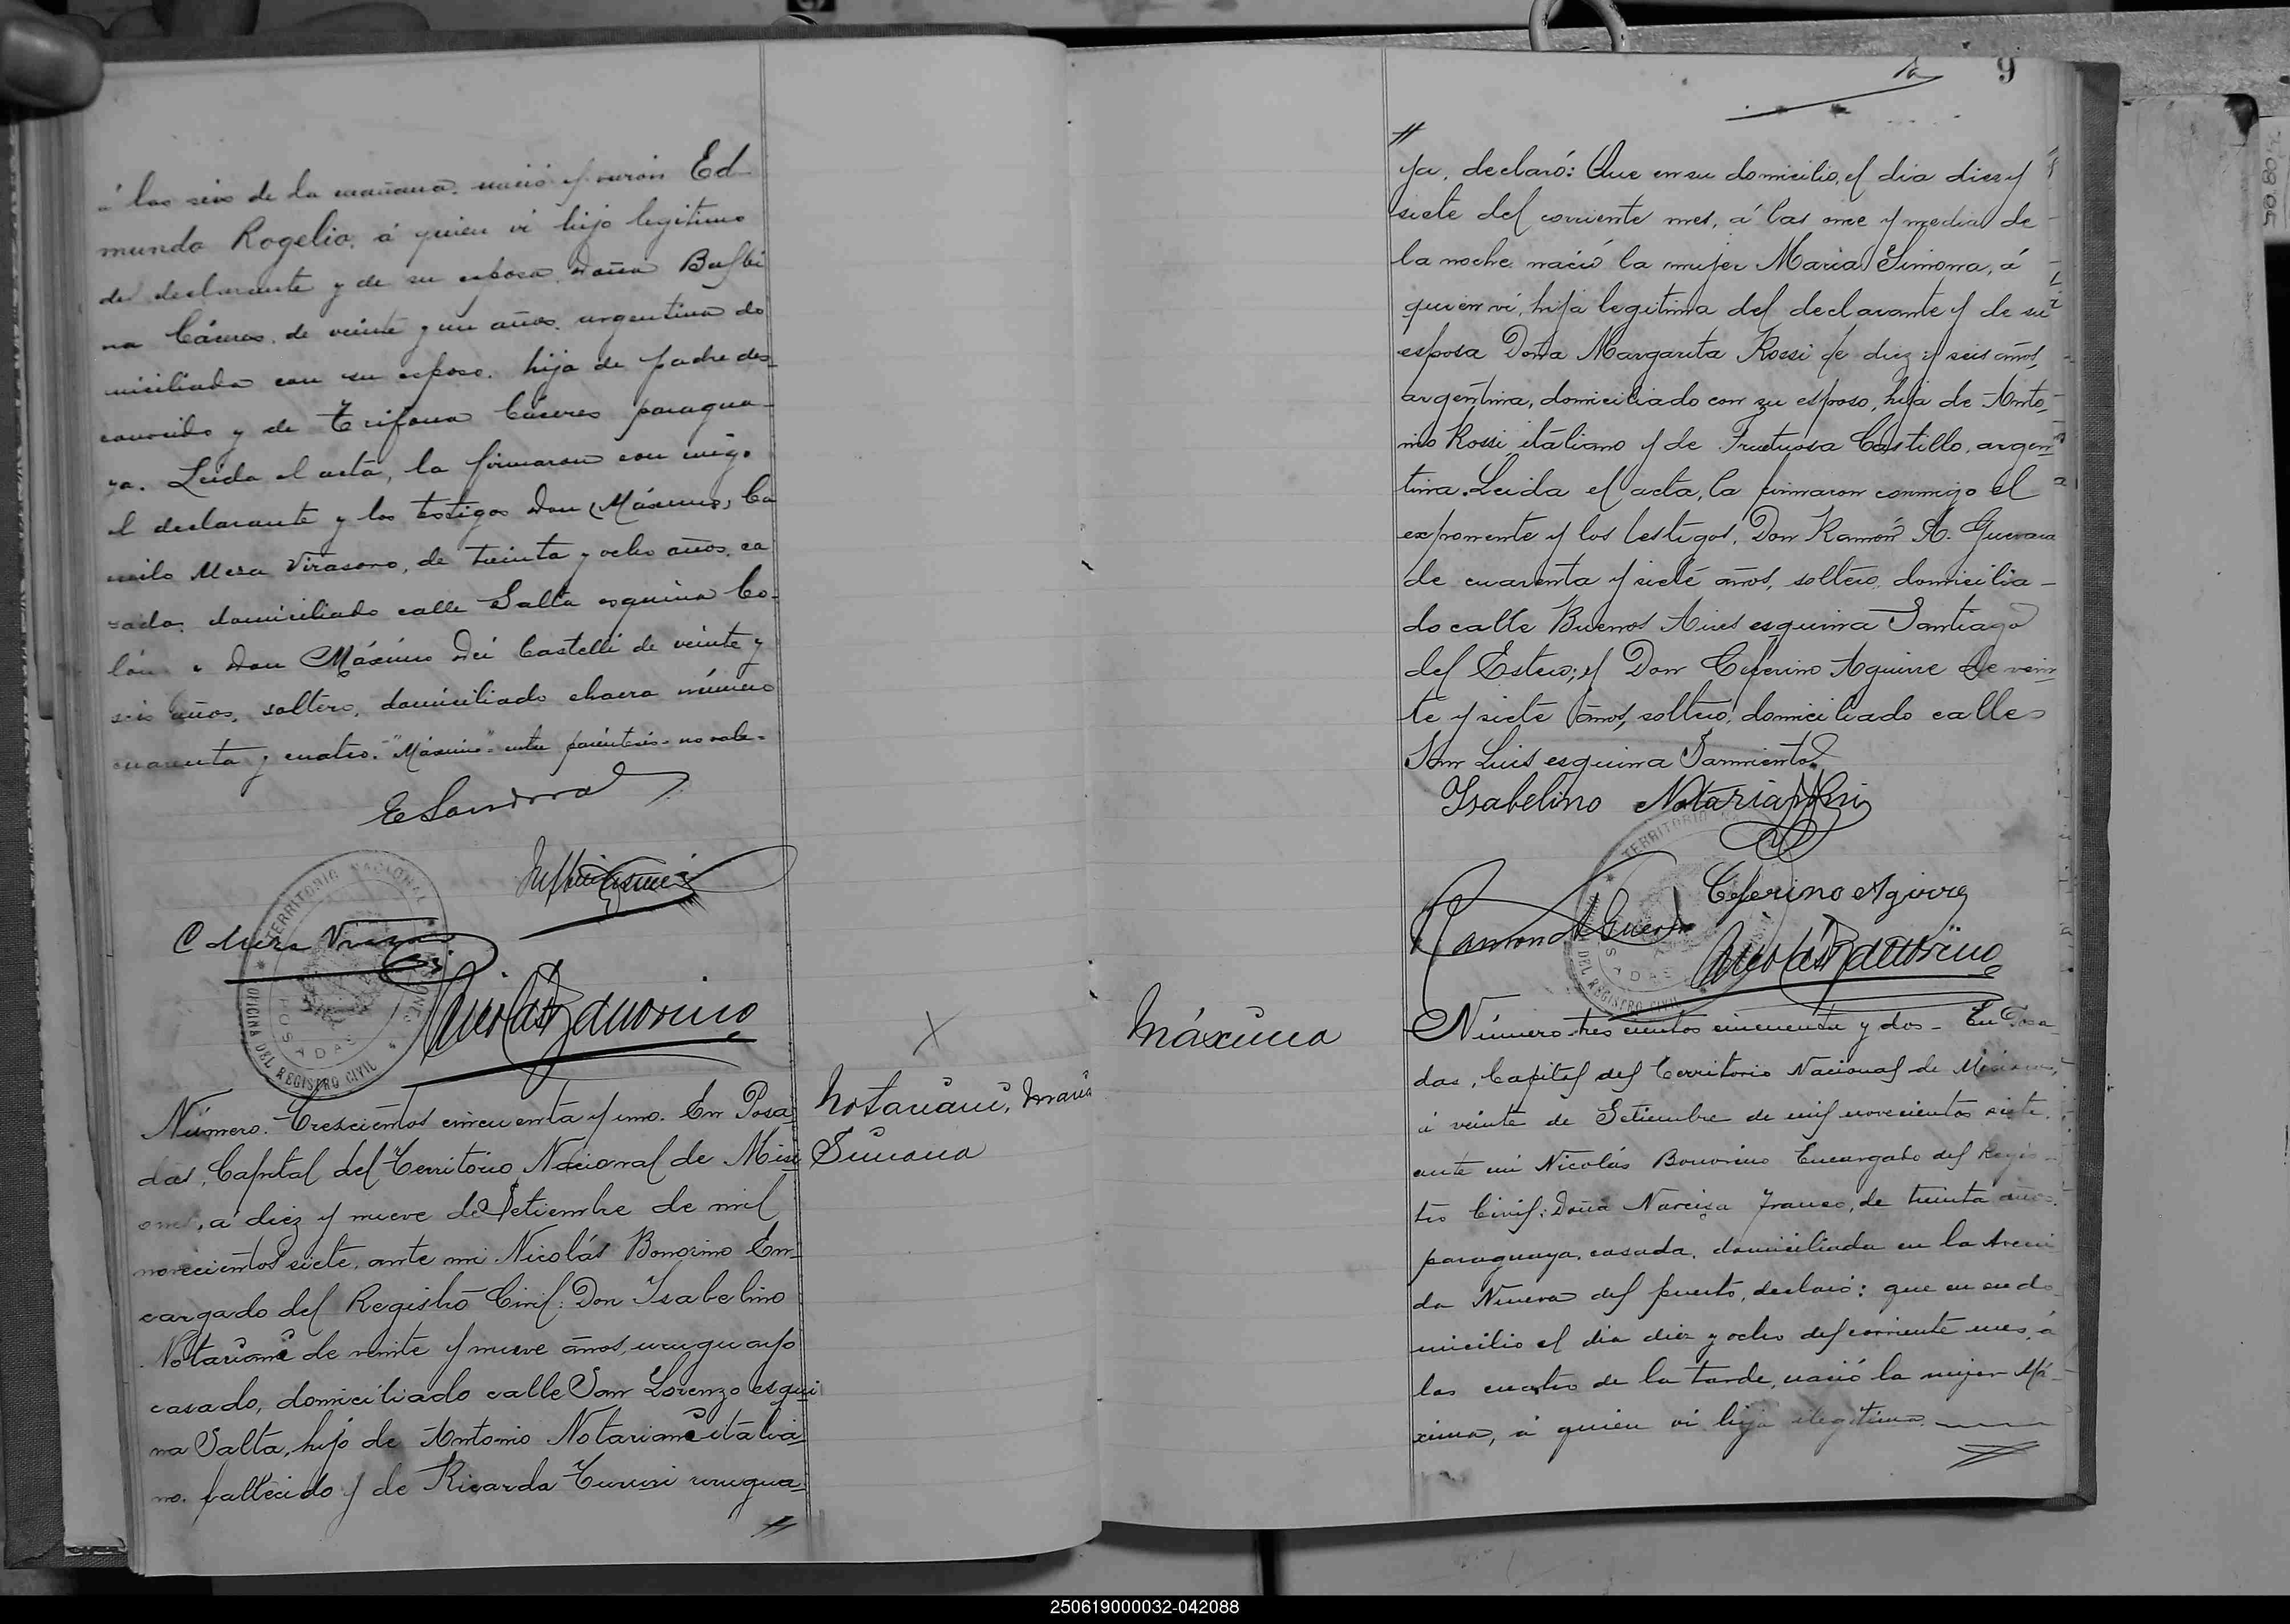 á las seis de la mañana. nació el varón Ed
mundo Rogelio, á quien ví hijo legítimo
del declarante y de su esposa Doña Balbi
na Cáceres, de veinte y un años, argentina do
miciliada con su esposo. hija de padre des
conocido y de Trifona Cáceres paragua
ya. Leida el acta, la firmaron con migo
el declarante y los testigos Don (Máximo) Ca
milo Mesa Virasoro, de treinta y ocho años, ca
sado, domiciliado calle Salta esquina Co-
lón y Don Máximo Dei Castelli de veinte y
seis años, soltero, domiciliado chacra número
cuarenta y cuatro. "Máximo" entre paréntesis - no vale -
E Sandoval
TERRITORIO NACIONAL
MISIONES
OFICINA DEL REGISTRO CIVIL
POSADAS
C Mesa Virasoro
Nicolás Bonorino
Número. Trescientos cincuenta y uno. En Posa
das, Capital del Territorio Nacional de Misi
ones, a diez y nueve de Setiembre de mil
novecientos siete, ante mi Nicolás Bonorino En-
cargado del Registro Civil: Don Isabelino
Notariani de veinte y nueve años, uruguayo
casado, domiciliado calle San Lorenzo esqui
na Salta, hijo de Antonio Notariani italia
no. fallecido y de Ricarda urugua-
//
X
Notariani, Maria
Simona
9
//
ya, declaró: Que en su domicilio, el dia diez y
siete del corriente mes, á las once y media de
la noche nació la mujer Maria Simona, á
quien ví, hija legitima del declarante y de su
esposa Doña Margarita Rossi de diez y seis años,
argentina, domiciliado con su esposo, hija de Anto
nio Rossi italiano y de Fructuosa Castillo, argen
tina. Leida el acta, la firmaron conmigo el
exponente y los testigos, Don Ramón A. Guevara
de cuarenta y siete años, soltero, domicilia-
do calle Buenos Aires esquina Santiago
del Estero; y Don Ceferino Aguirre de vein
te y siete años, soltero, domiciliado calle
San Luis esquina Sarmiento
Isabelino Notariani
TERRITORIO
DEL REGISTRO CIVIL
POSADAS
Ceferino Agirre
Ramon A Guevara
Nicolás Bonorino
Máxima
Número tres cientos cincuenta y dos - En Posa
das, Capital del Territorio Nacional de Misiones,
á veinte de Setiembre de mil novecientos siete,
ante mi Nicolás Bonorino Encargado del Regis
tro Civil: Doña Narcisa Franco, de treinta años,
paraguaya, casada, domiciliada en la Aveni
da Nueva del puerto, declaró: que en su do
micilio el dia diez y ocho del corriente mes, á
las cuatro de la tarde, nació la mujer Má-
xima, á quien ví hija ilegítima
//
250619000032-042088